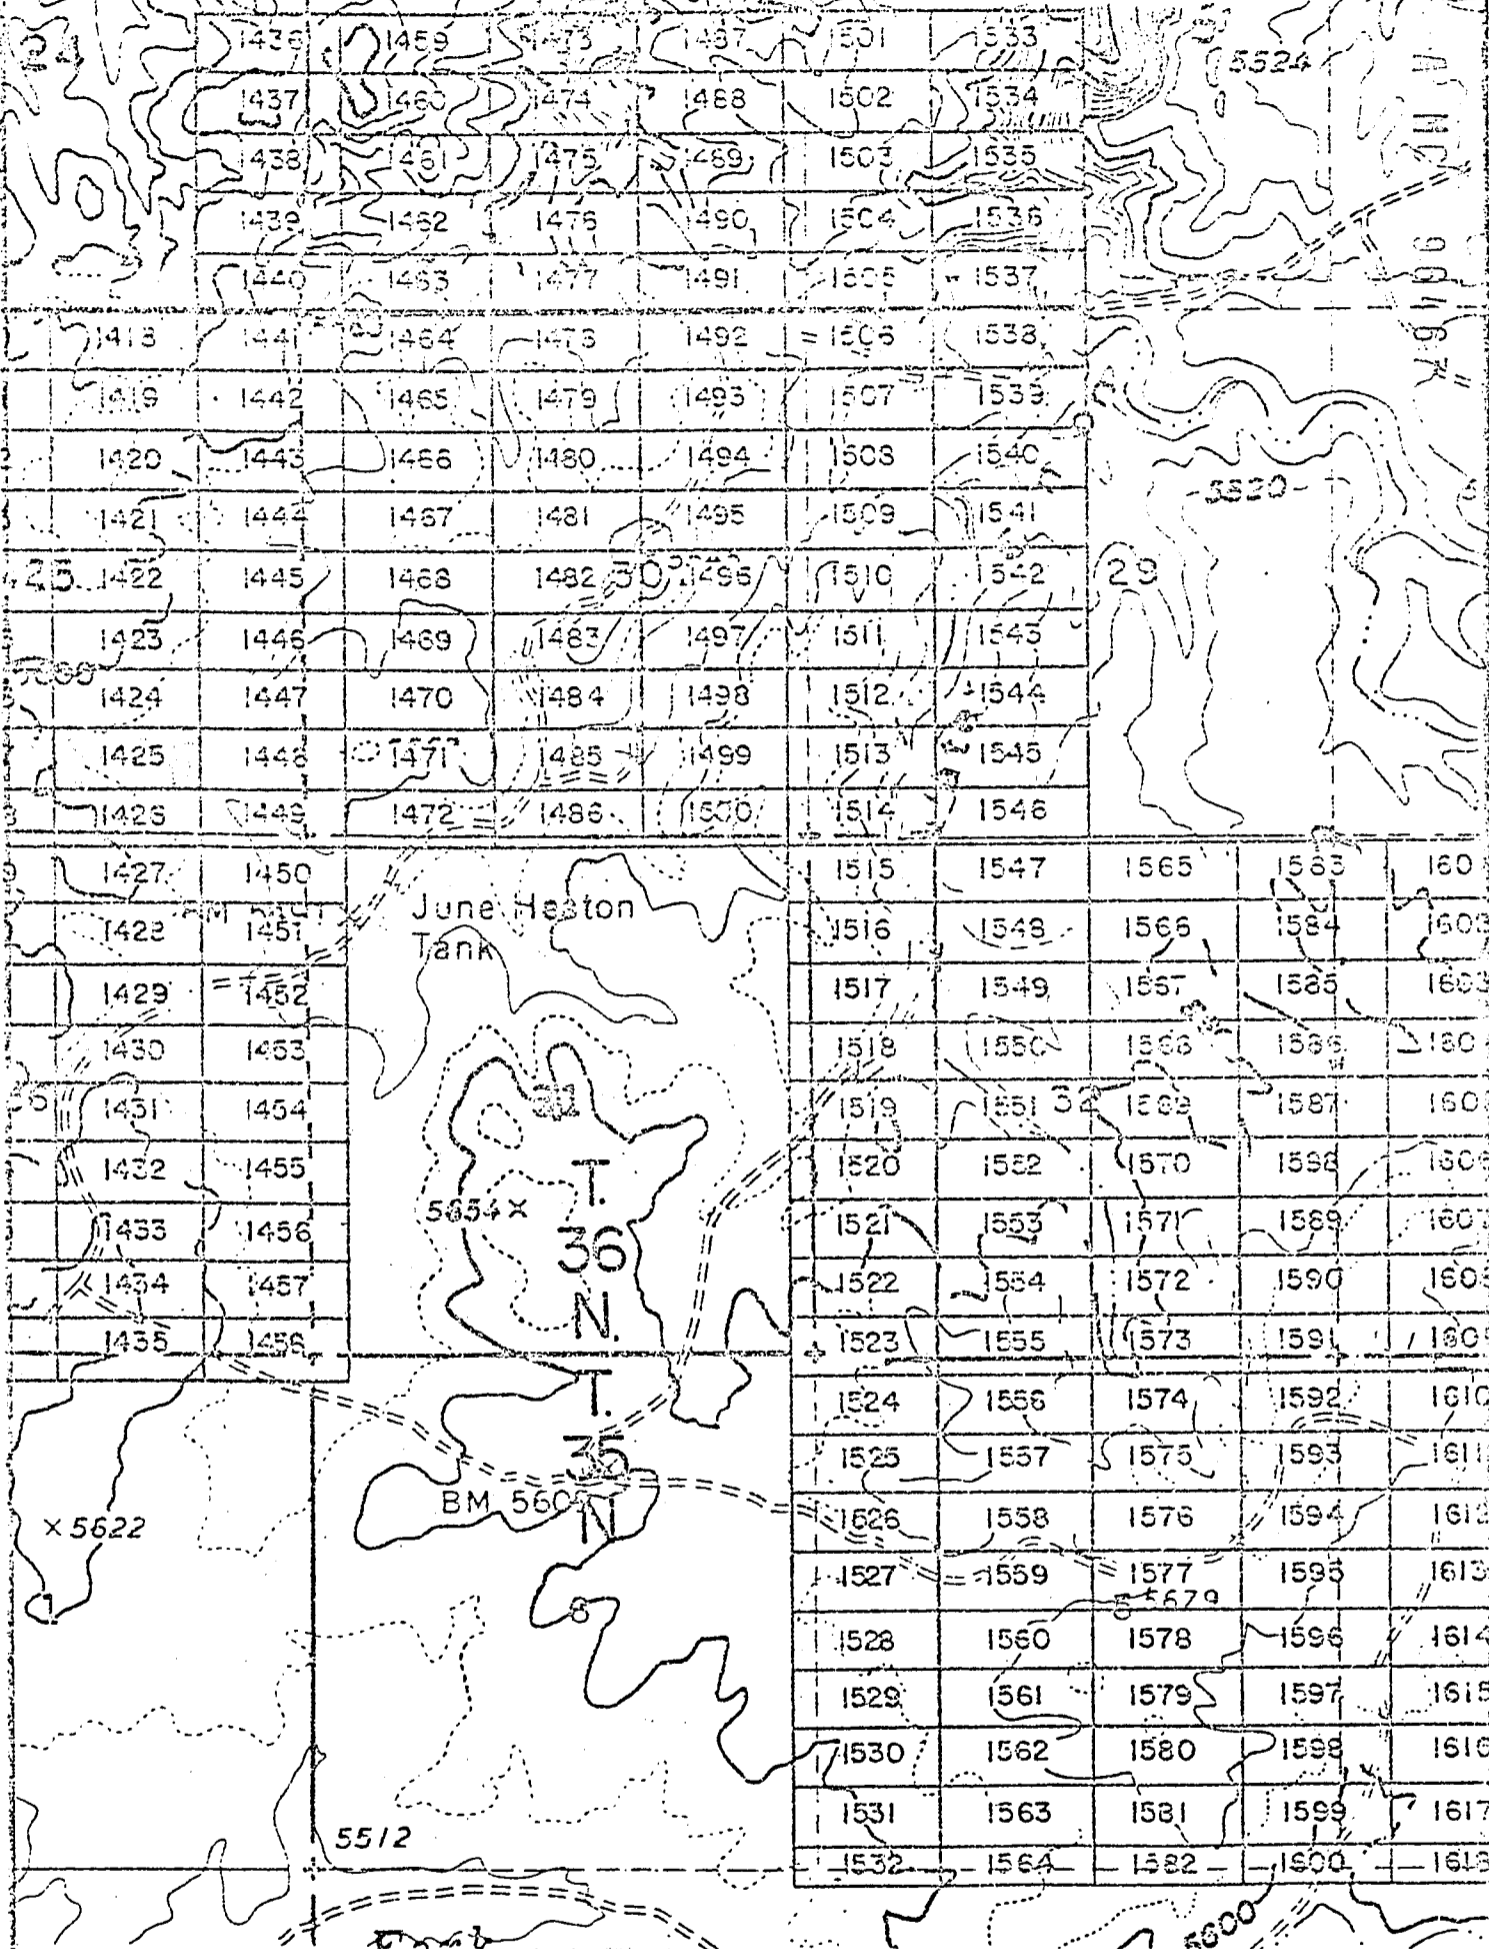 24 1436 1459 1473 1487 1501 1533 5524
1437 1460 1474 1488 1502 1534
1438 1461 1475 1489 1503 1535
1439 1462 1476 1490 1504 1536
1440 1463 1477 1491 1505 1537
1418 1441 1464 1478 1492 1506 1538
1419 1442 1465 1479 1493 1507 1539
1420 1443 1466 1480 1494 1508 1540
1421 1444 1467 1481 1495 1509 1541 5520
1422 1445 1468 1482 30 1496 1510 1542 29
1423 1446 1469 1483 1497 1511 1543
1424 1447 1470 1484 1498 1512 1544
1425 1448 1471 1485 1499 1513 1545
1426 1449 1472 1486 1500 1514 1546
1427 1450 1515 1547 1565 1583
June Heston
Tank
1428 1451 1516 1548 1566 1584
1429 1452 1517 1549 1567 1585 1603
1430 1453 1518 1550 1568 1586
1431 1454 31 1519 1551 32 1569 1587
1432 1455 T. 1520 1552 1570 1588 1606
1433 1456 5654 × 36 1521 1553 1571 1589 1607
1434 1457 N. 1522 1554 1572 1590
1435 1458 1523 1555 1573 1591
T. 1524 1556 1574 1592 1610
35 1525 1557 1575 1593 1611
N
× 5622 1526 1558 1576 1594 1612
1527 1559 1577 1595 1613
1 6 5 5679
1528 1560 1578 1596 1614
1529 1561 1579 1597 1615
1530 1562 1580 1598 1616
1531 1563 1581 1599 1617
5512
1532 1564 1582 1600 1618
5600